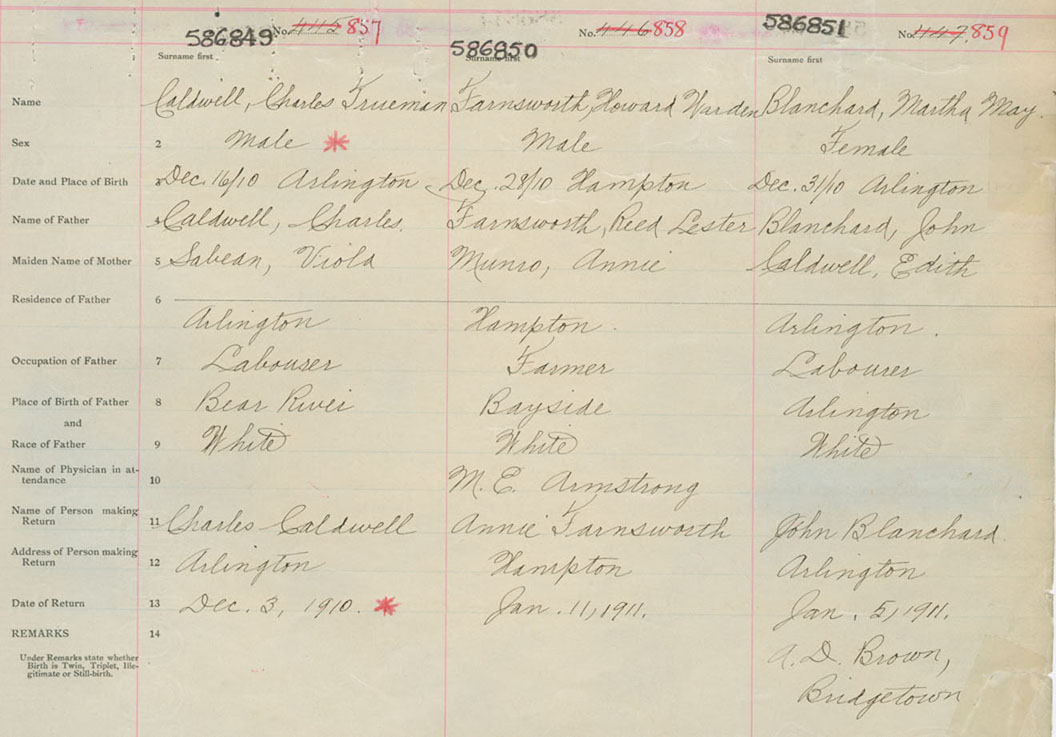 586849 No. 445 857
586850 No. 446 858
586851 No. 447 859
Surname first Surname first Surname first
Name Caldwell, Charles Trueman Farnsworth, Howard Warden Blanchard, Martha May
Sex 2 Male * Male Female
Date and Place of Birth 3 Dec. 16/10 Arlington Dec. 28/10 Hampton Dec. 31/10 Arlington
Name of Father 4 Caldwell, Charles. Farnsworth, Reed Lester Blanchard, John
Maiden Name of Mother 5 Sabean, Viola Munro, Annie Caldwell, Edith
Residence of Father 6
Arlington Hampton. Arlington.
Occupation of Father 7 Labourer Farmer Labourer
Place of Birth of Father 8 Bear River Bayside Arlington
and
Race of Father 9 White White White
Name of Physician in at-
tendance 10 M. E. Armstrong
Name of Person making
Return 11 Charles Caldwell Annie Farnsworth John Blanchard.
Address of Person making
Return 12 Arlington Hampton Arlington
Date of Return 13 Dec. 3, 1910. * Jan. 11, 1911. Jan. 5, 1911.
REMARKS 14
Under Remarks state whether
Birth is Twin, Triplet, Ille-
gitimate or Still-birth.
A. D. Brown,
Bridgetown